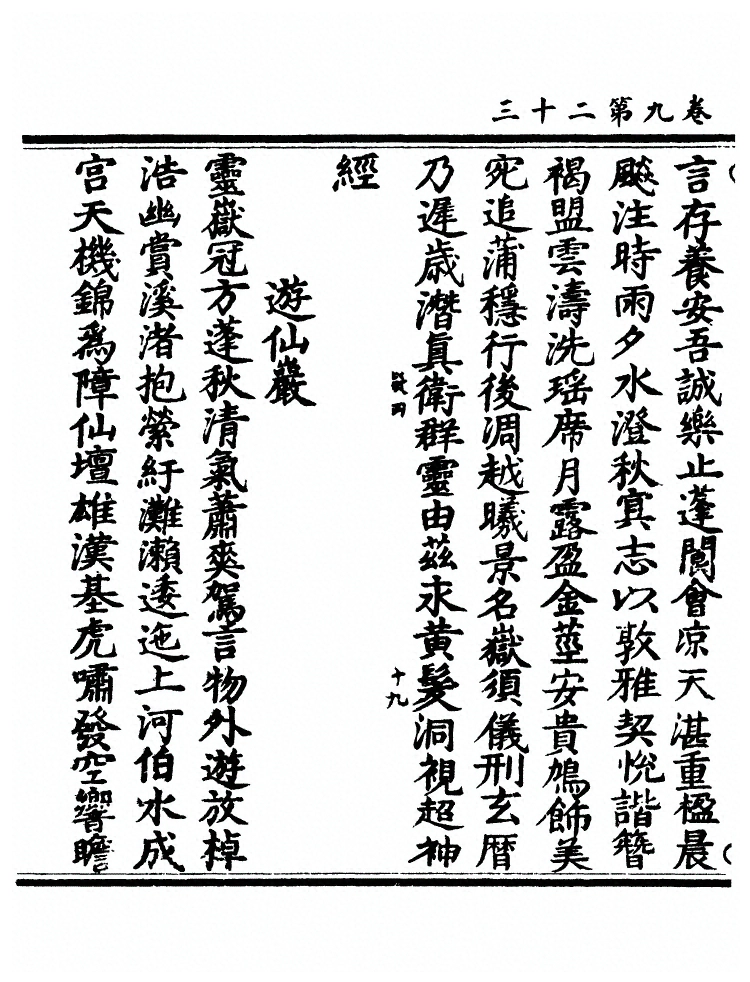 卷九第二十三
言存養安吾誠樂止蓬閬會凉天湛重楹晨
飈注時雨夕水澄秋寘志以敦雅契悅諧簪
褐盟雲濤洗瑶席月露盈金莖安貴鳩飾美
宛追蒲穩行後凋越曦景名嶽須儀刑玄曆
乃遲歲潛真衛群靈由茲永黄髮洞視超神
經
遊仙巖
靈嶽冠方蓬秋清氣蕭爽駕言物外遊放棹
浩幽賞溪渚抱縈紆灘瀨逶迤上河伯水成
宫天機錦爲障仙壇雄漢基虎嘯發空響瞻
十九